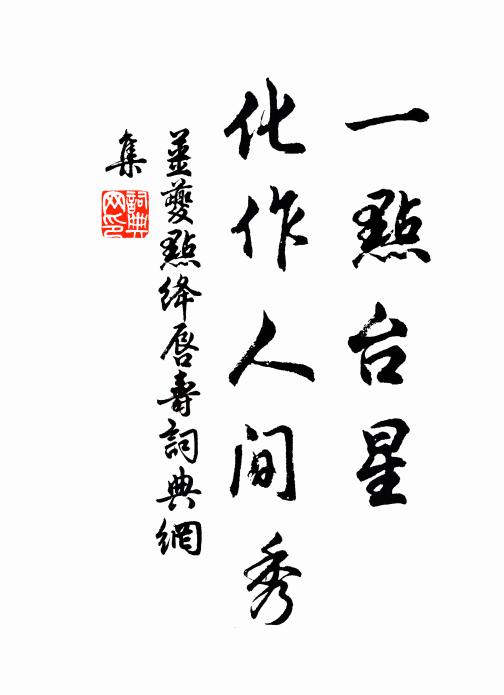 一點台星
化作人间秀
姜夔點絳唇壽詞典網
集
詞典网印